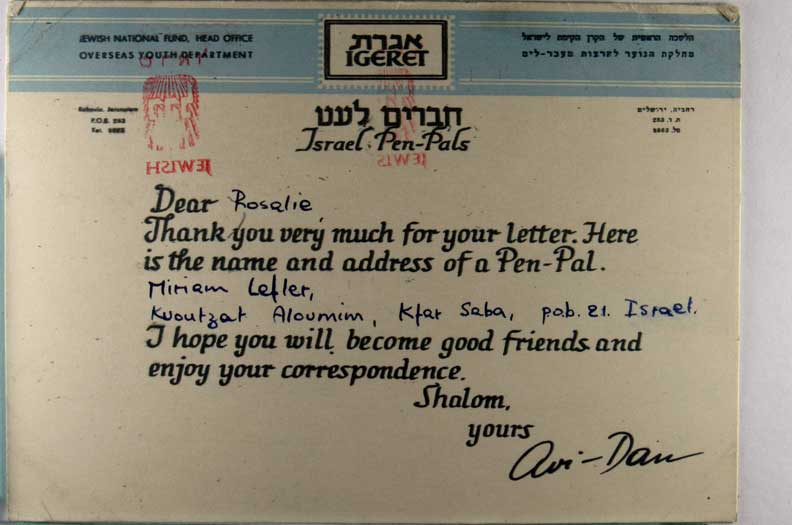 JEWISH NATIONAL FUND, HEAD OFFICE
OVERSEAS YOUTH DEPARTMENT
אגרת
IGERET
הלשכה הראשית של הקרן הקימת לישראל
מחלקת הנוער לארצות מעבר-לים
Rehavia, Jerusalem
P.O.B. 283
Tel.
חברים לעט
Israel Pen-Pals
רחביה, ירושלים
ת.ד. 283
טל.
JEWISH
JEWIS
Dear Rosalie
Thank you very much for your letter. Here
is the name and address of a Pen-Pal.
Miriam Lefler,
Kvoutzat Aloumim, Kfar Saba, p.o.b. 21. Israel.
I hope you will become good friends and
enjoy your correspondence.
Shalom,
yours
Avi-Dan